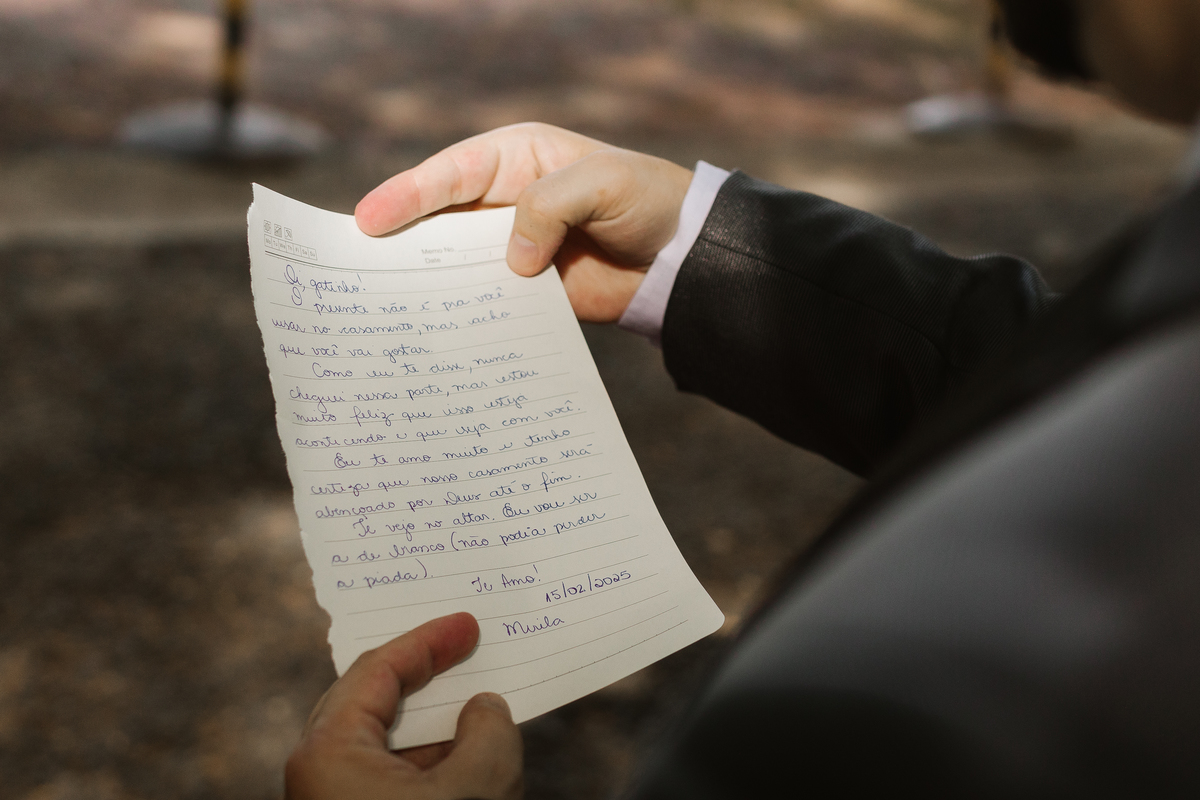 Memo No.
Date / /
Oi, gatinho!
O presente não é pra você
usar no casamento, mas acho
que você vai gostar.
Como eu te disse, nunca
cheguei nessa parte, mas estou
muito feliz que isso esteja
acontecendo e que seja com você.
Eu te amo muito e tenho
certeza que nosso casamento será
abençoado por Deus até o fim.
Te vejo no altar. Eu vou ser
a de branco (não podia perder
a piada).
Te Amo!
15/02/2025
Mirila